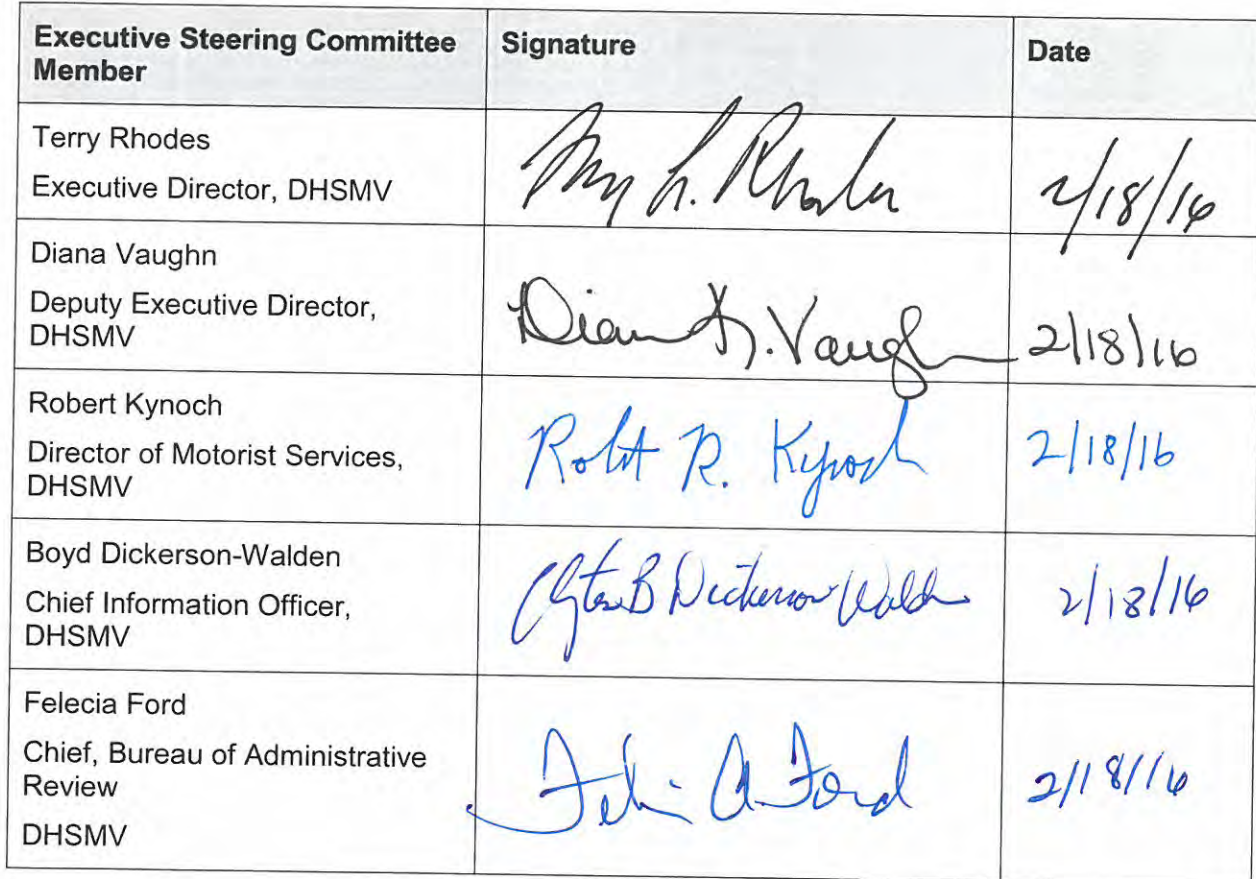 Executive Steering Committee
Member
Signature
Date
Terry Rhodes
Executive Director, DHSMV
L. Rhodes
2/18/16
Diana Vaughn
Deputy Executive Director,
DHSMV
Vaughn
2/18/16
Robert Kynoch
Director of Motorist Services,
DHSMV
Robt R. Kynoch
2/18/16
Boyd Dickerson-Walden
Chief Information Officer,
DHSMV
B Dickerson-Walden
2/18/16
Felecia Ford
Chief, Bureau of Administrative
Review
DHSMV
A Ford
2/18/16